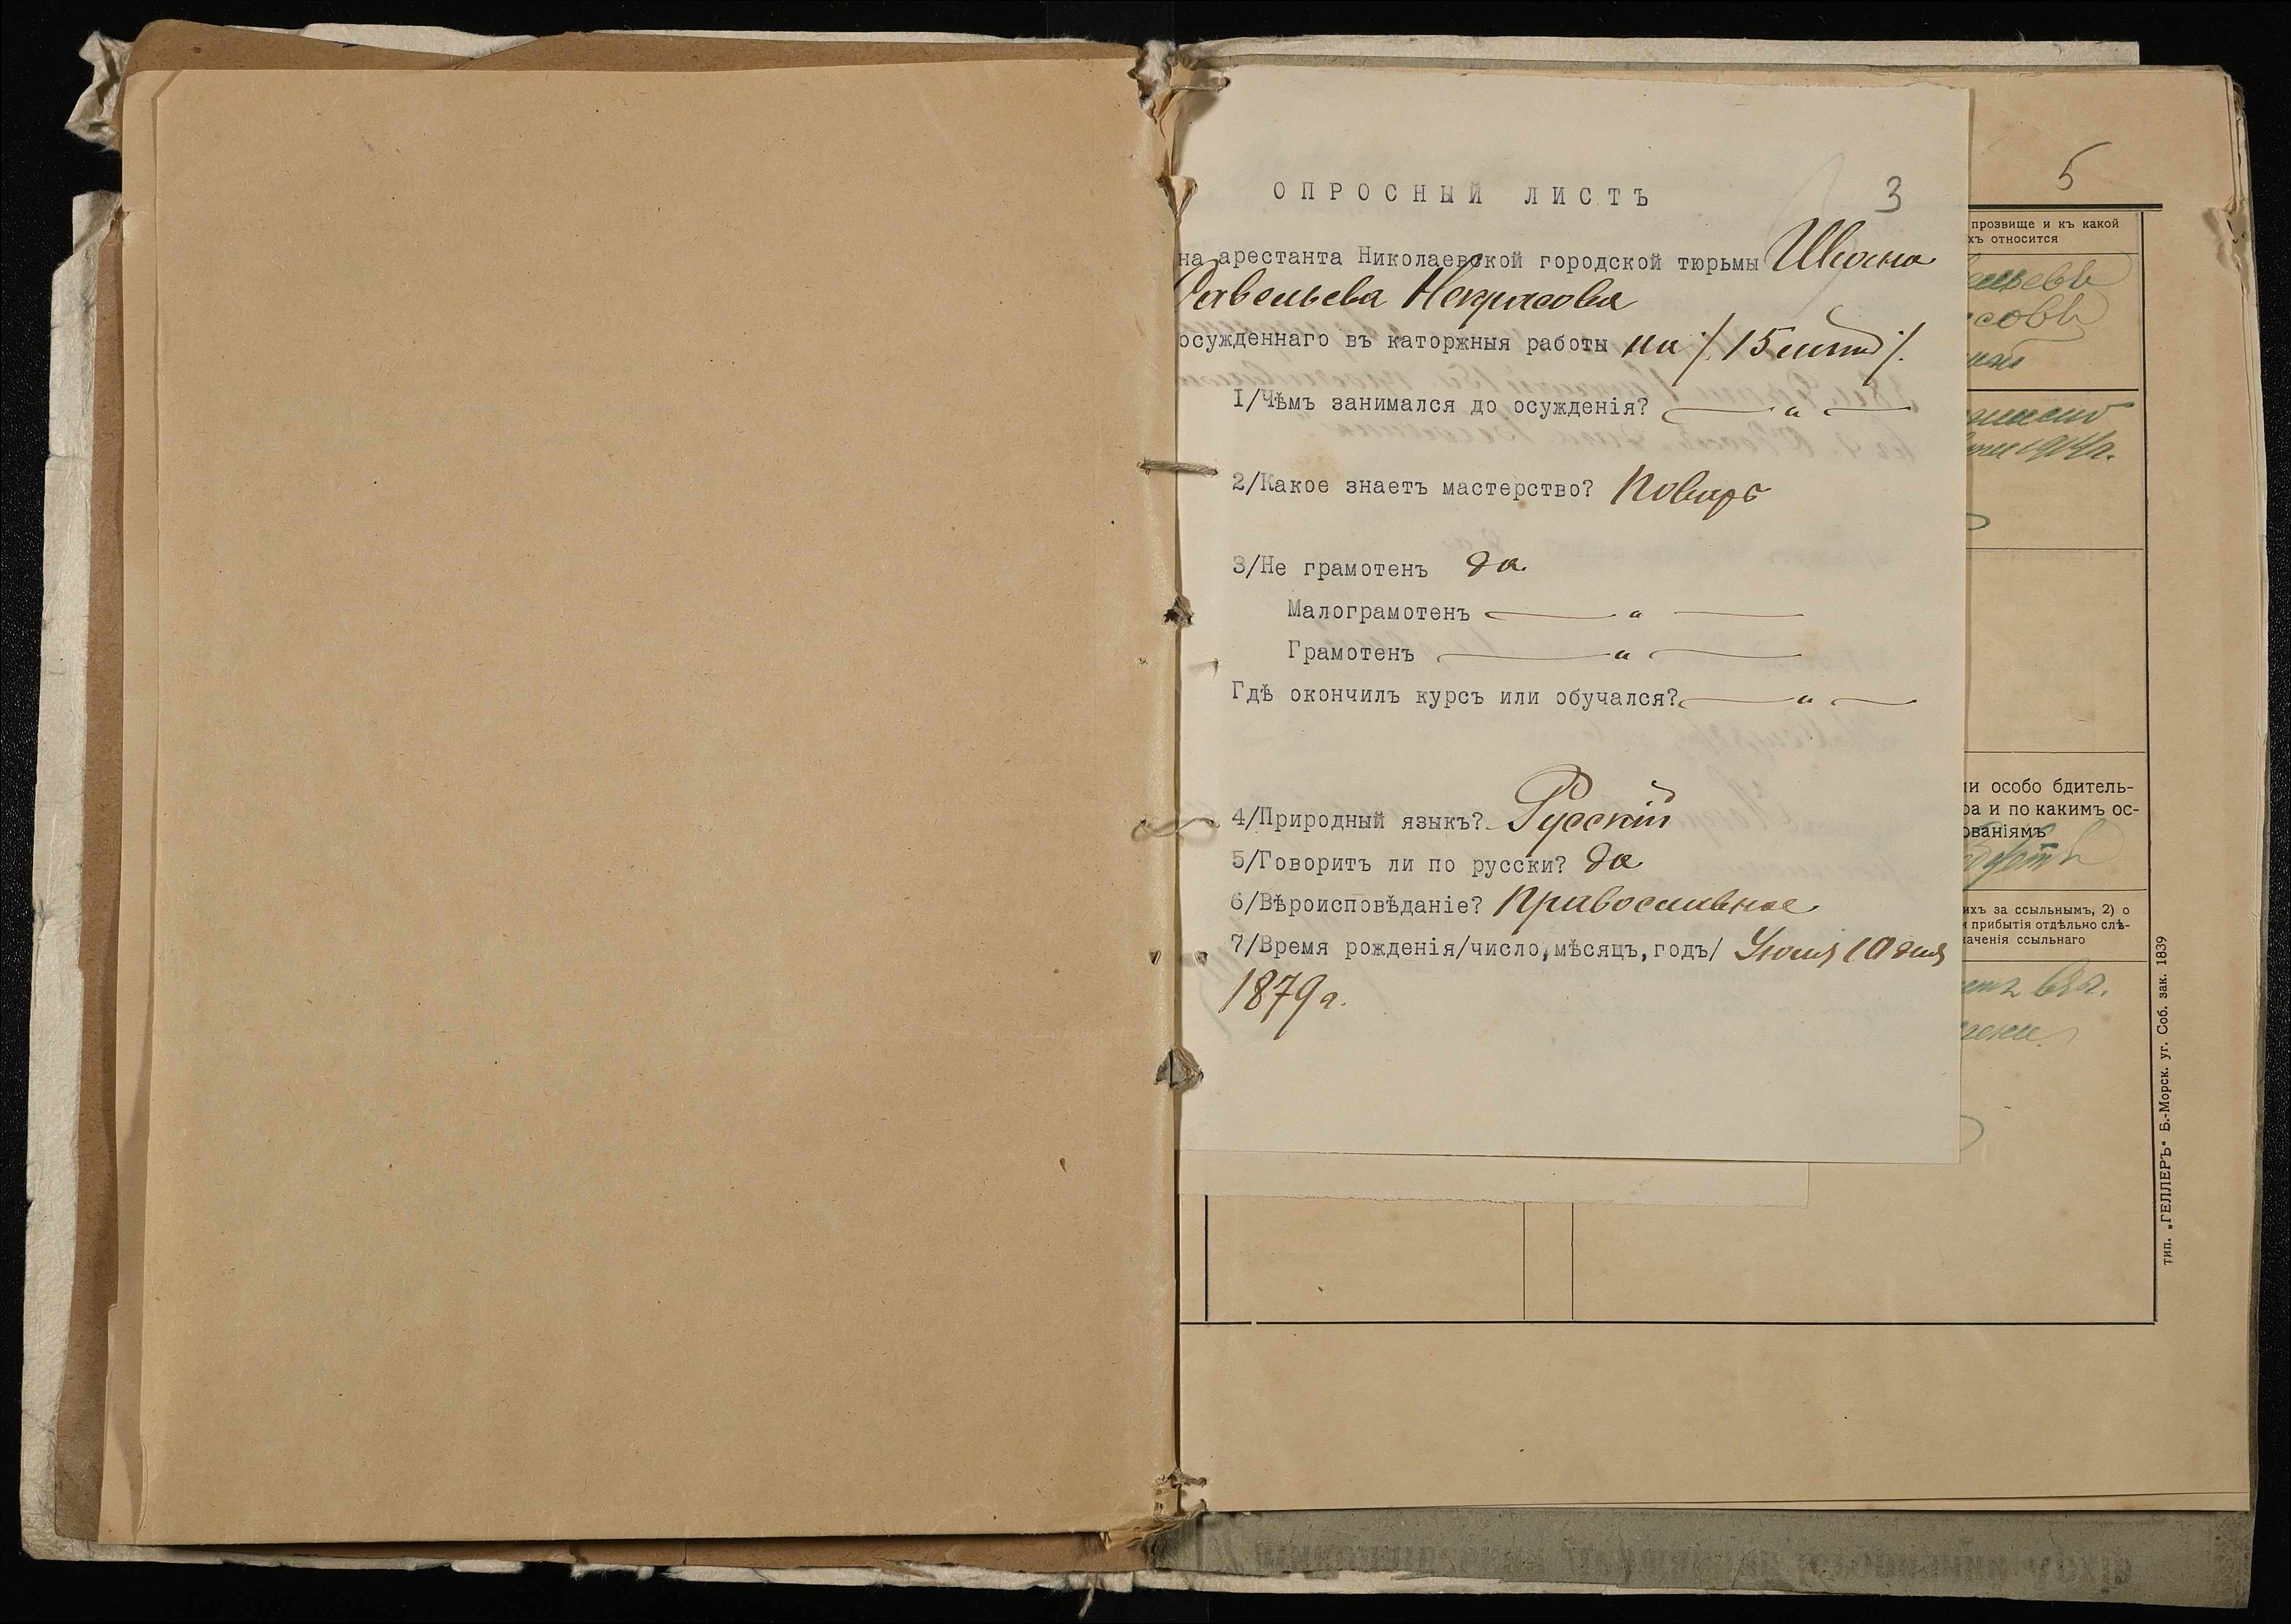 3
ОПРОСНЫЙ ЛИСТЪ
на арестанта Николаевской городской тюрьмы Ивана
Савельева Некрасова
осужденнаго въ каторжныя работы на ./. 15 лѣтъ ./.
I/Чѣмъ занимался до осужденія? — „ —
2/Какое знаетъ мастерство? Поваръ
3/Не грамотенъ да
Малограмотенъ — „ —
Грамотенъ — „ —
Гдѣ окончилъ курсъ или обучался? — „ —
4/Природный языкъ? Русскій
5/Говоритъ ли по русски? да
6/Вѣроисповѣданіе? Православное
7/Время рожденія/число,мѣсяцъ,годъ/ 10 дня
1879 г.
5
прозвище и къ какой
хъ относится
1914 г.
ли особо бдитель-
ра и по какимъ ос-
ованіямъ
ихъ за ссыльнымъ, 2) о
и прибытія отдѣльно слѣ-
наченія ссыльнаго
тип. „ГЕЛЛЕРЪ“ Б.-Морск. уг. Соб. зак. 1839